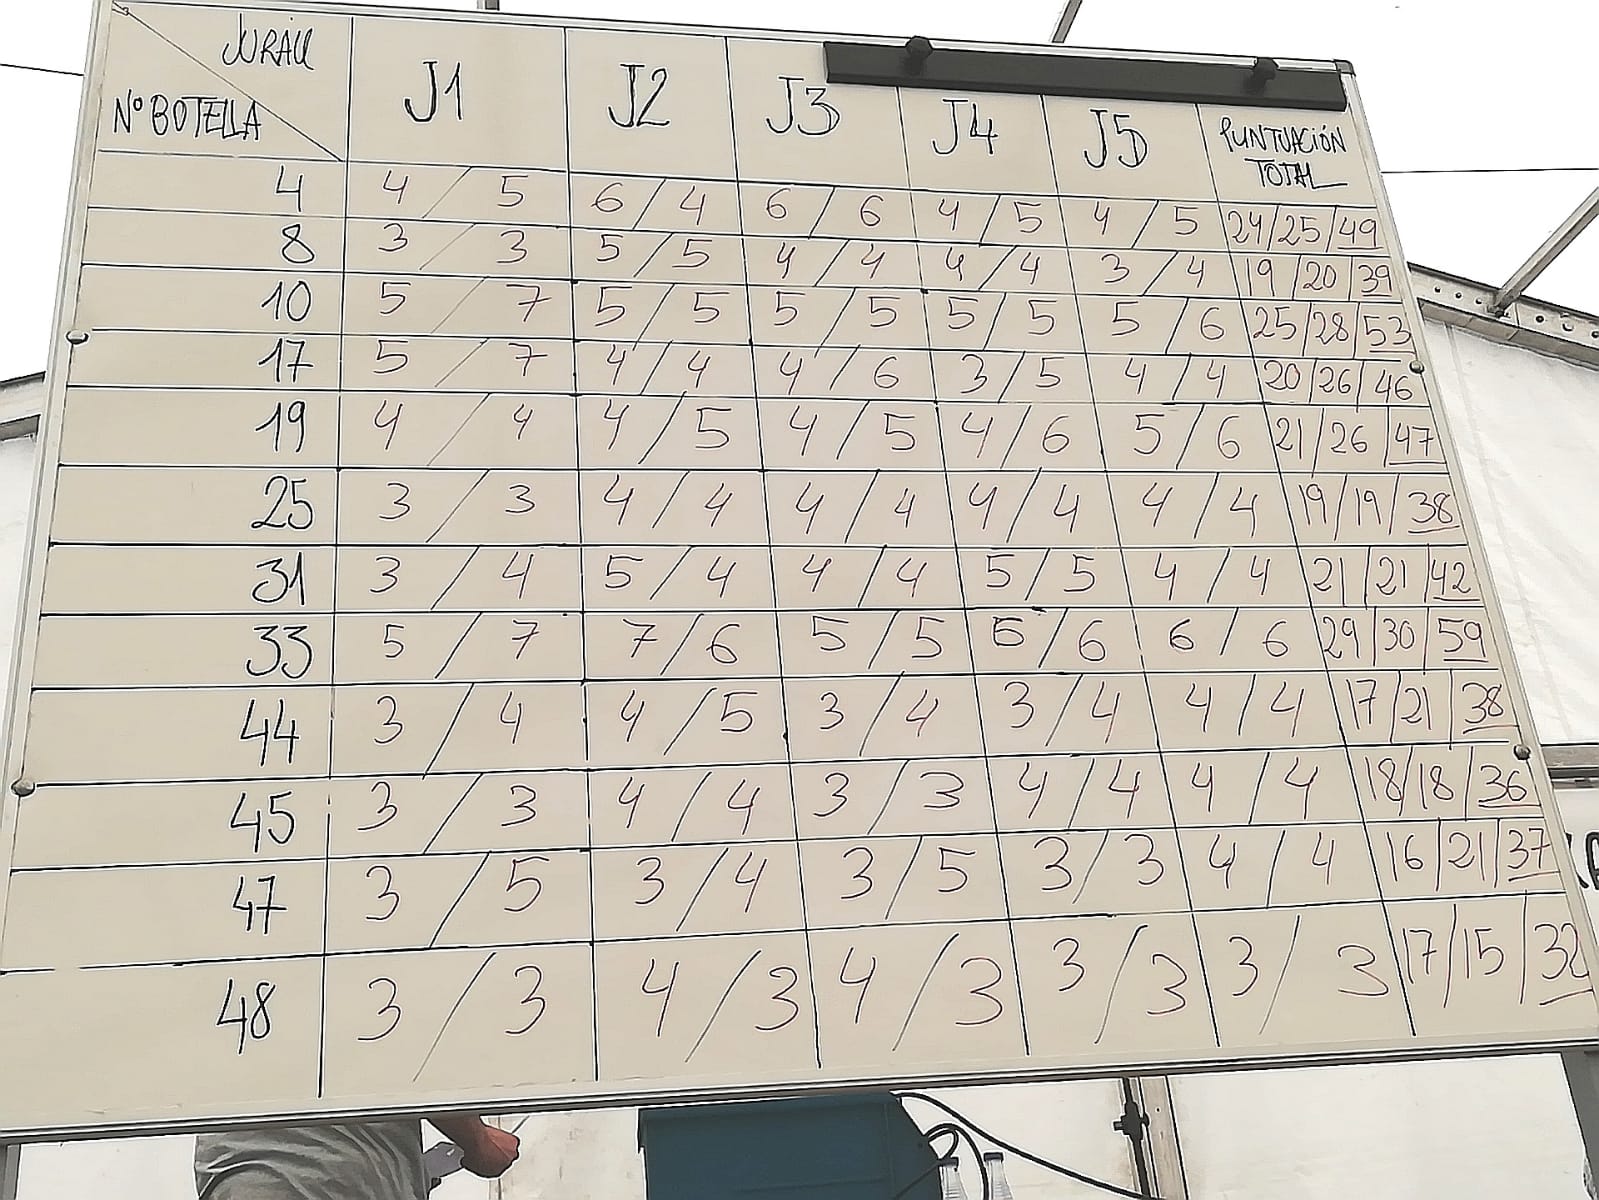 JURADO
Nº BOTELLA J1 J2 J3 J4 J5 PUNTUACIÓN TOTAL
4 4/5 6/4 6/6 4/5 4/5 24/25/49
8 3/3 5/5 4/4 4/4 3/4 19/20/39
10 5/7 5/5 5/5 5/5 5/6 25/28/53
17 5/7 4/4 4/6 3/5 4/4 20/26/46
19 4/4 4/5 4/5 4/6 5/6 21/26/47
25 3/3 4/4 4/4 4/4 4/4 19/19/38
31 3/4 5/4 4/4 5/5 4/4 21/21/42
33 5/7 7/6 5/5 6/6 6/6 29/30/59
44 3/4 4/5 3/4 3/4 4/4 17/21/38
45 3/3 4/4 3/3 4/4 4/4 18/18/36
47 3/5 3/4 3/5 3/3 4/4 16/21/37
48 3/3 4/3 4/3 3/3 3/3 17/15/32